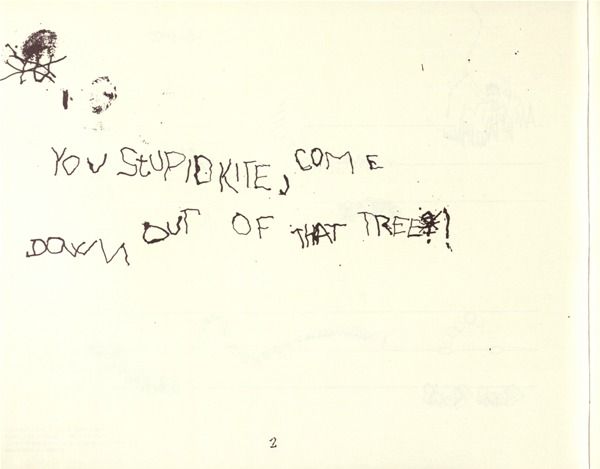 YOU STUPID KITE, COME
DOWN OUT OF THAT TREE!
2